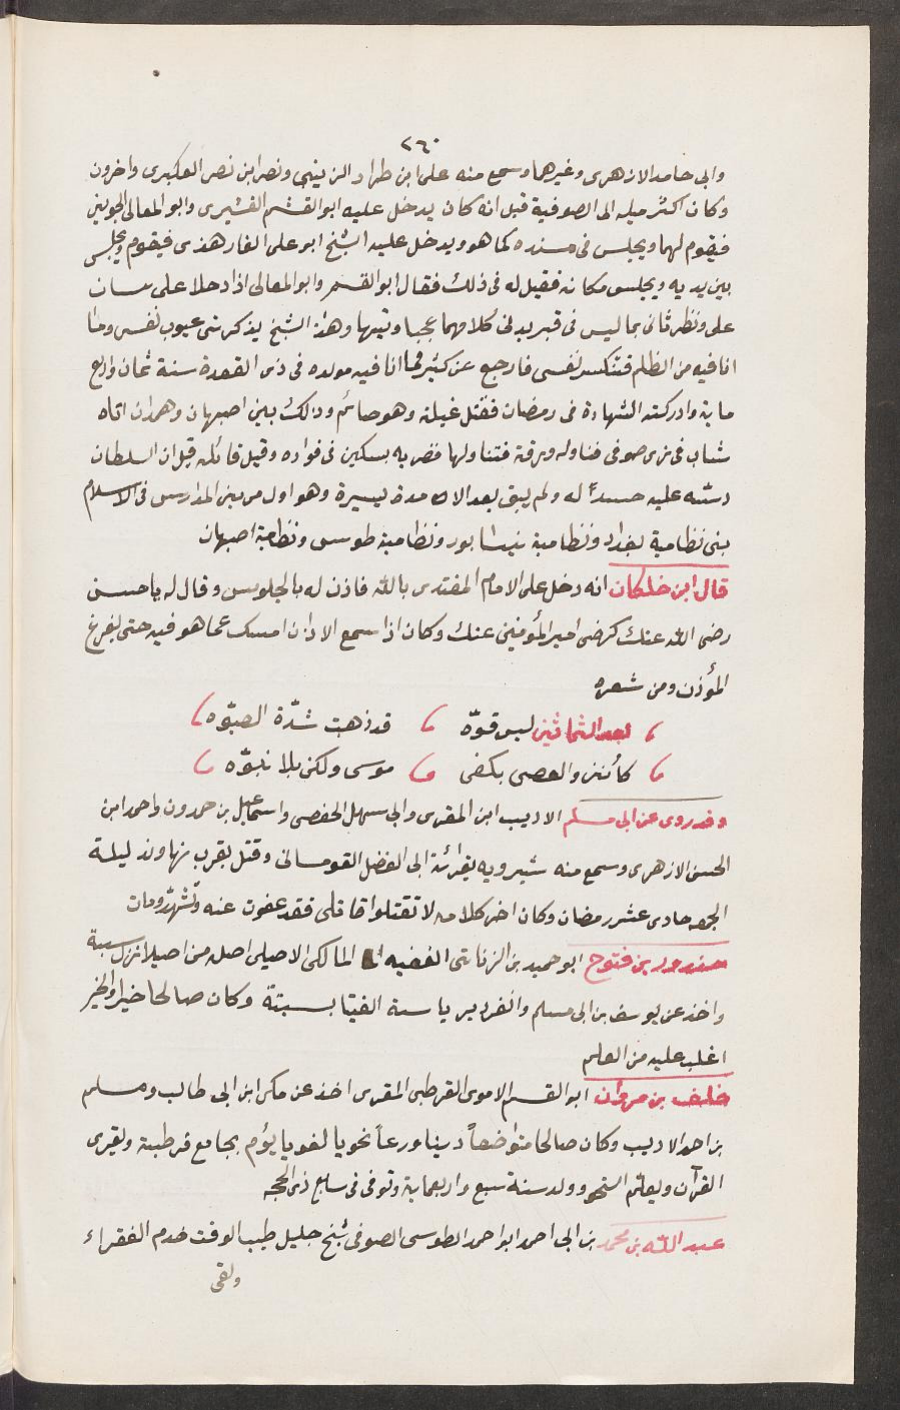 ٢٦٠
وابى حامد الازهرى وغيرهما وسمع منه على ابن طراد الزينبى ونصر ابن نصر العكبرى واخرون
وكان اكثر ميله الى الصوفية قيل انه كان يدخل عليه ابو القسم القشيرى وابو المعالى الجوينى
فيقوم لهما ويجلس فى مسنده كما هو ويدخل عليه الشيخ ابو على الفارهذى فيقوم ويجلس
بين يديه ويجلس مكانه فقيل له فى ذلك فقال ابو القسم وابو المعالى اذا دخلا على
على ونظرثانى بما ليس فى كلامهما عجبا وتيها وهذا الشيخ يذكرنى عيوب نفسى وما
انا فيه من الظلم فتنكسر نفسى فارجع عن كثير مما انا فيه مولده فى ذى القعدة سنة ثمان واربع
ماية وادركته الشهادة فى رمضان فقتل غيلة وهو صائم وذالك بين اصبهان وهمدان اتاه
شاب فى زى صوفى فناوله ورقة فتناولها فضربه بسكين فى فواده وقيل قاتله قيل ان السلطان
دسه عليه حسداً له ولم يبق بعد الا مدة يسيرة وهو اول من بنى المدارس فى الاسلام
بنى نظامية بغداد ونظامية نيشابور ونظامية طوس ونظامية اصبهان
قال ابن خلكان انه دخل على الامام المقتدى بالله فاذن له بالجلوس وقال له يا حسن
رضى الله عنك كرضى امير المؤمنين عنك وكان اذا سمع الاذان امسك عما هو فيه حتى يفرغ
المؤذن ومن شعره
بعد الثمانين ليس قوّه قد ذهبت شدّة الصبوّه
كأننى والعصى بكفى موسى ولكن بلا نبوّه
وقد روى عن ابى مسلم الاديب ابن المقرى وابى سهل الحفصى واسماعيل بن حمدون واحمد ابن
الحسن الازهرى وسمع منه شيرويه بقرائة ابى الفضل القومسانى وقتل بقرب نهاوند ليلة
الجمعه حادى عشر رمضان وكان اخر كلامه لا تقتلوا قاتلى فقد عفوت عنه وتشهّد ومات
بن فتوح ابو حميد بن الزناتى الفقيه المالكى الاصيلى اصله من اصيلا نزل سبتة
واخذ عن يوسف بن ابى مسلم وانفرد برياسة الفتيا بسبتة وكان صالحا خيرا والخير
اغلب عليه من العلم
خلف بن مروان ابو القسم الاموى القرطبى المقرى اخذ عن مكى ابن ابى طالب ومسلم
بن احمد الاديب وكان صالحا متواضعاً دينا ورعاً نحويا لغويا يؤم بجامع قرطبة ويقرى
القرآن ويعلّم النحو وولد سنة سبع واربعماية وتوفى فى سابع ذى الحجه
عبد الله بن محمد بن ابى احمد ابو احمد الطوسى الصوفى شيخ جليل طيب الوقت خدم الفقراء
ولقى